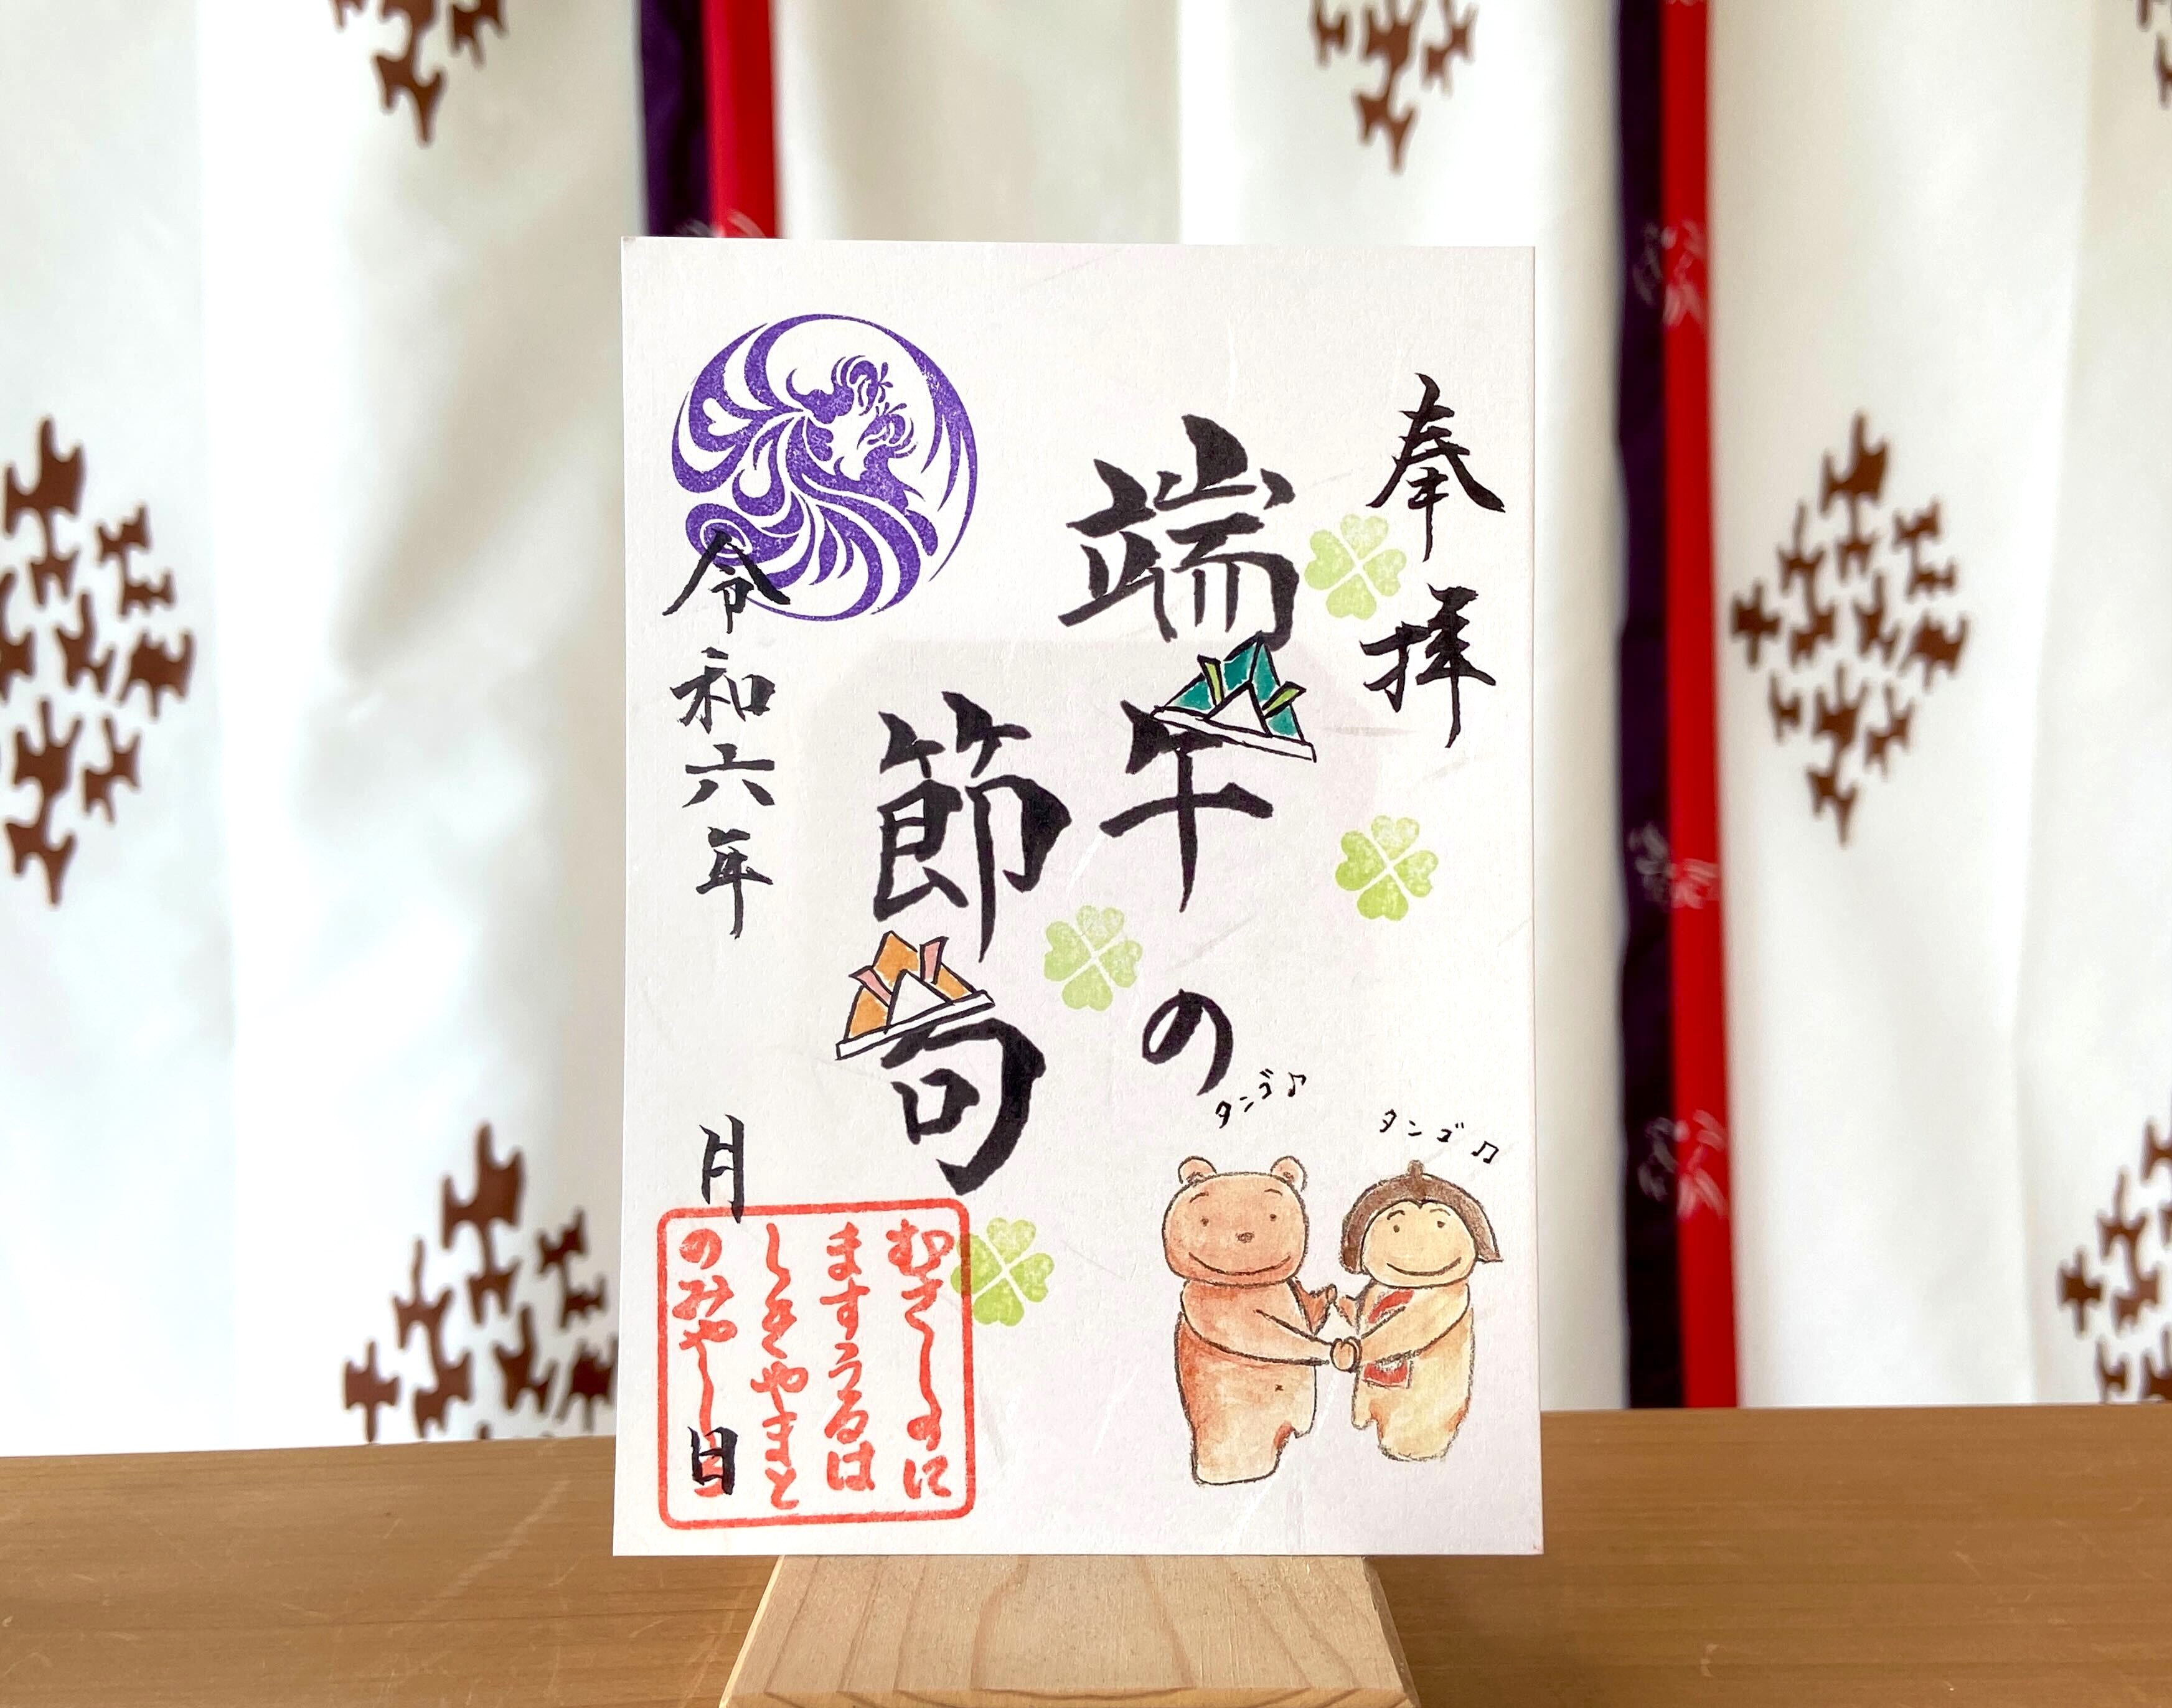 奉拝
端午の
節句
タンゴ♪
タンゴ♫
令和六年 月 日
ますうるは
しきやまと
のみやしろ